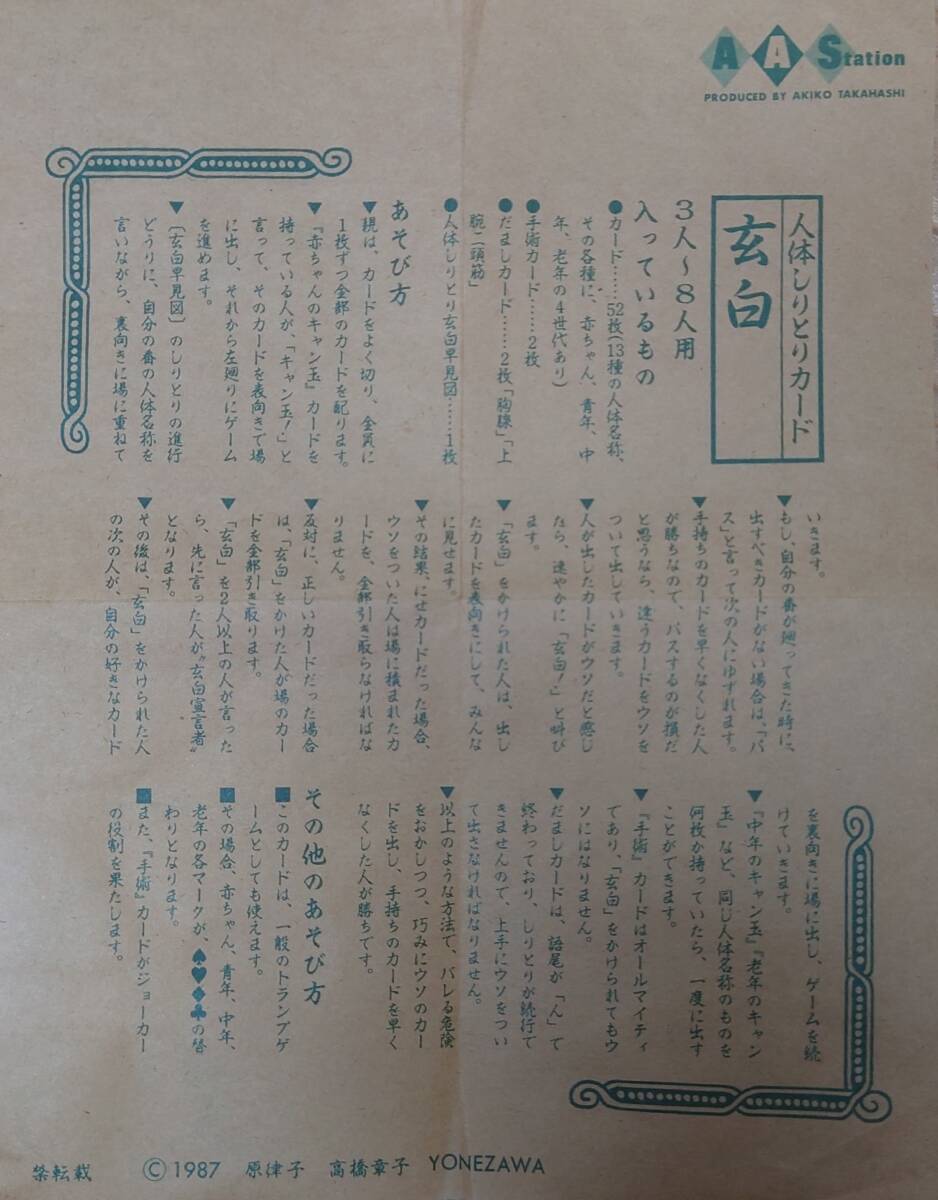 AAStation
PRODUCED BY AKIKO TAKAHASHI
人体しりとりカード
玄白
3人〜8人用
入っているもの
●カード……52枚(13種の人体名称、
その各種に、赤ちゃん、青年、中
年、老年の4世代あり)
●手術カード……2枚
●だましカード……2枚「胸腺」「上
腕二頭筋」
●人体しりとり玄白早見図……1枚
あそび方
▼親は、カードをよく切り、全員に
1枚ずつ全部のカードを配ります。
▼『赤ちゃんのキャン玉』カードを
持っている人が、「キャン玉!」と
言って、そのカードを表向きで場
に出し、それから左廻りにゲーム
を進めます。
▼〔玄白早見図〕のしりとりの進行
どうりに、自分の番の人体名称を
言いながら、裏向きに場に重ねて
いきます。
▼もし、自分の番が廻ってきた時に、
出すべきカードがない場合は、「パ
ス」と言って次の人にゆずれます。
▼手持ちのカードを早くなくした人
が勝ちなので、パスするのが損だ
と思うなら、違うカードをウソを
ついて出していきます。
▼人が出したカードがウソだと感じ
たら、速やかに「玄白!」と叫び
ます。
▼「玄白」をかけられた人は、出し
たカードを表向きにして、みんな
に見せます。
▼その結果、にせカードだった場合、
ウソをついた人は場に積まれたカ
ードを、全部引き取らなければな
りません。
▼反対に、正しいカードだった場合
は、「玄白」をかけた人が場のカー
ドを全部引き取ります。
▼「玄白」を2人以上の人が言った
ら、先に言った人が〝玄白宣言者〟
となります。
▼その後は、「玄白」をかけられた人
の次の人が、自分の好きなカード
を裏向きに場に出し、ゲームを続
けていきます。
▼『中年のキャン玉』『老年のキャン
玉』など、同じ人体名称のものを
何枚か持っていたら、一度に出す
ことができます。
▼『手術』カードはオールマイティ
であり、「玄白」をかけられてもウ
ソにはなりません。
▼だましカードは、語尾が「ん」で
終わっており、しりとりが続行で
きませんので、上手にウソをつい
て出さなければなりません。
▼以上のような方法で、バレる危険
をおかしつつ、巧みにウソのカー
ドを出し、手持ちのカードを早く
なくした人が勝ちです。
その他のあそび方
■このカードは、一般のトランプゲ
ームとしても使えます。
■その場合、赤ちゃん、青年、中年、
老年の各マークが、♠♥♦♣の替
わりとなります。
■また、『手術』カードがジョーカー
の役割を果たします。
禁転載 ©1987 原律子 高橋章子 YONEZAWA